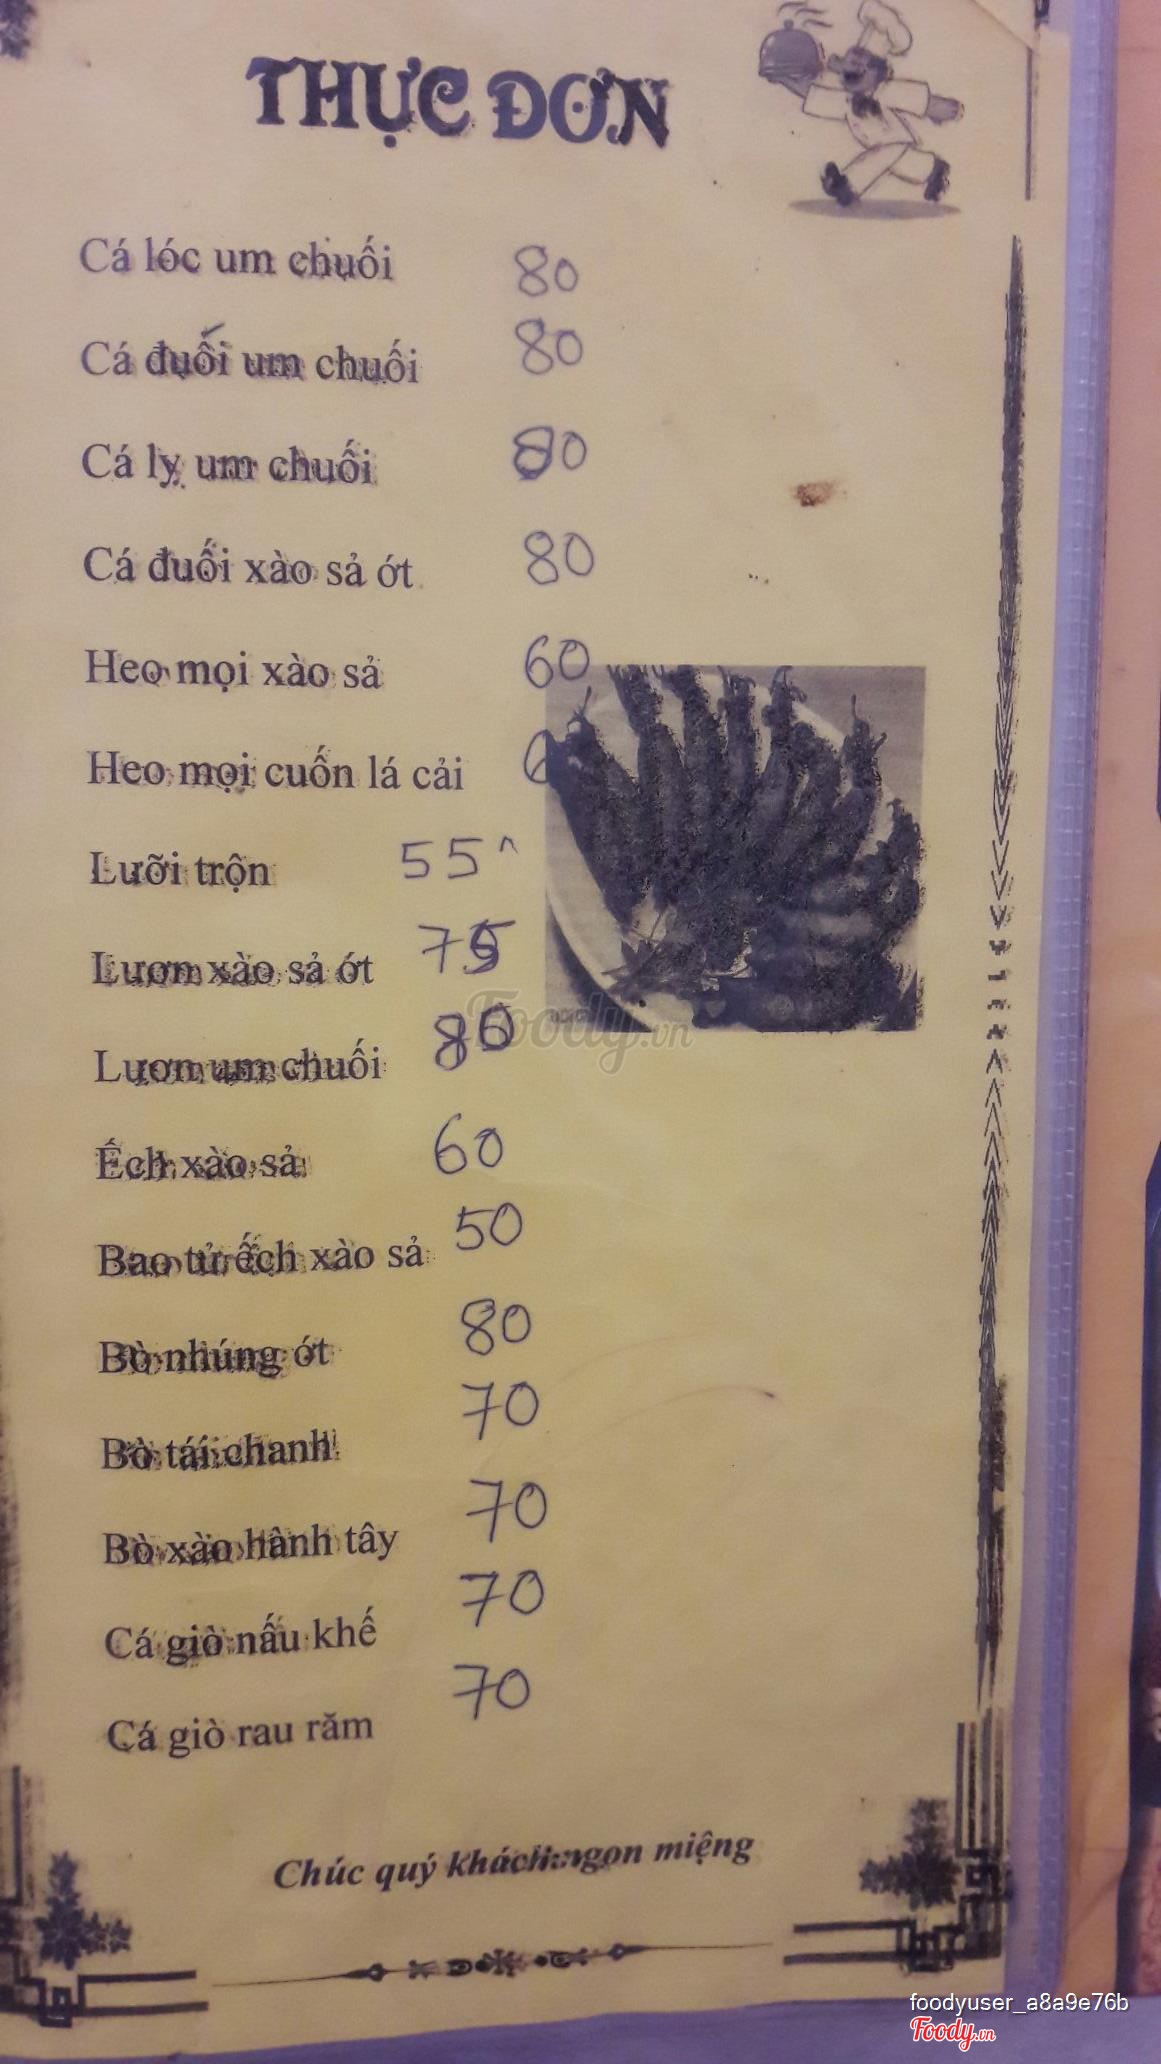 THỰC ĐƠN
Cá lóc um chuối 80
Cá đuối um chuối 80
Cá ly um chuối 80
Cá đuối xào sả ớt 80
Heo mọi xào sả 60
Heo mọi cuốn lá cải
Lưỡi trộn 55
Lươn xào sả ớt 75
Lươn um chuối 80
Ếch xào sả 60
Bao tử ếch xào sả 50
Bò nhúng ớt 80
Bò tái chanh 70
Bò xào hành tây 70
Cá giò nấu khế 70
Cá giò rau răm 70
Chúc quý khách ngon miệng
Foody.vn
foodyuser_a8a9e76b
Foody.vn